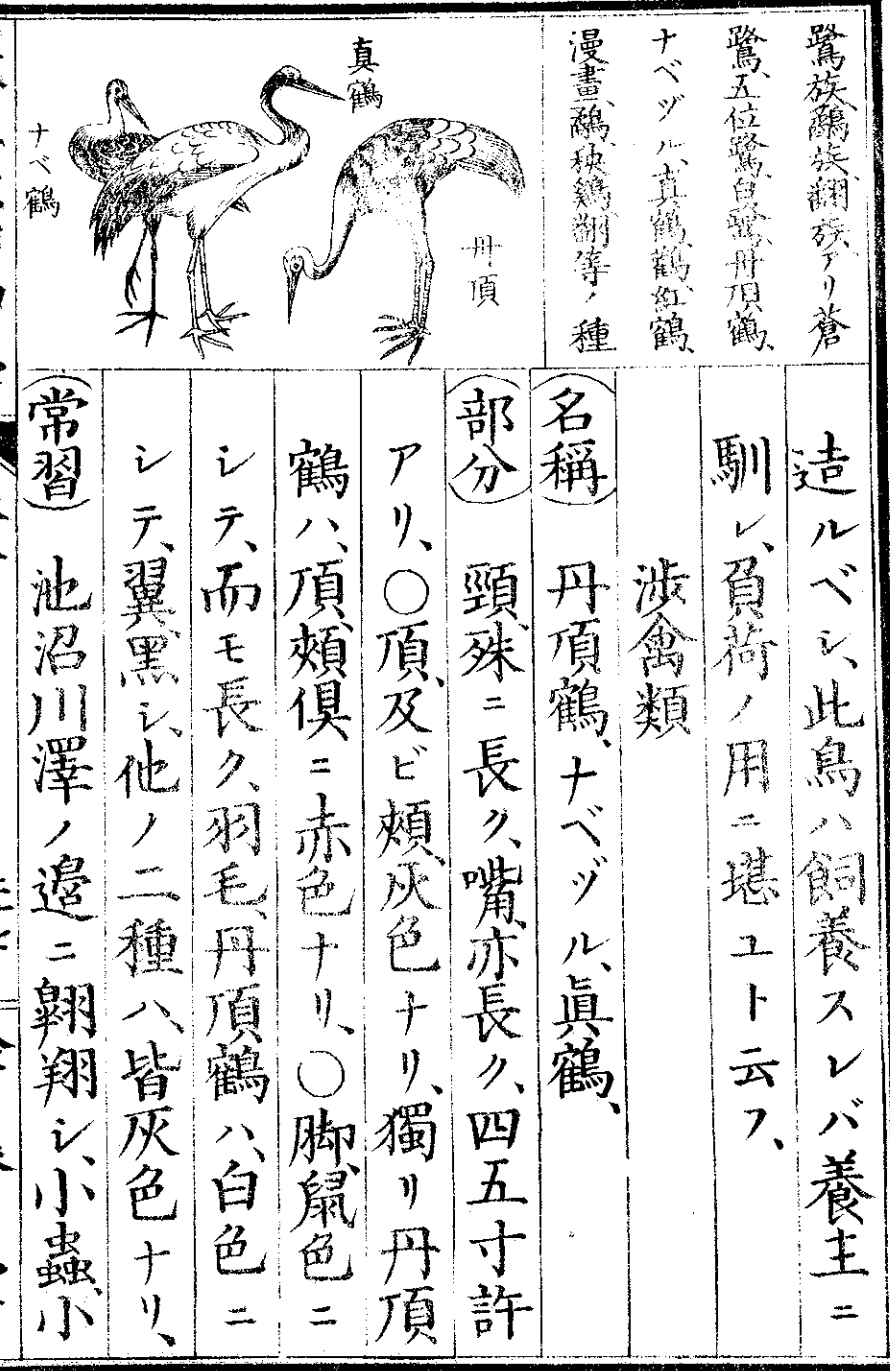 鷺族、鷭族、翻族、アリ蒼
鷺、五位鷺、白鷺、丹頂鶴、
ナベヅル、真鶴、鶴、紅鶴、
漫畫、鷭、秧鷄、等ノ種
真鶴
丹頂
ナベ鶴
造ルベシ、此鳥ハ飼養スレバ養主ニ
馴レ、負荷ノ用ニ堪ユト云フ、
渉禽類
(名稱)丹頂鶴、ナベヅル、眞鶴、
(部分)頸、殊ニ長ク、嘴、亦長ク、四五寸許
アリ、〇頂、及ビ頰、灰色ナリ、獨リ丹頂
鶴ハ、頂、頰倶ニ赤色ナリ、〇脚、鼠色ニ
シテ、而モ長ク、羽毛、丹頂鶴ハ、白色ニ
シテ、翼、黑シ、他ノ二種ハ、皆灰色ナリ、
(常習)池沼川澤ノ邉ニ翺翔シ、小蟲、小